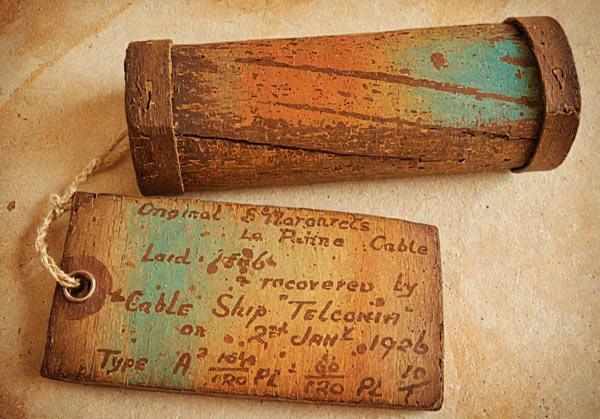 Original St Margarets
La Panne Cable
Laid 1886
& recovered by
Cable Ship "Telconia"
on 2nd Jany. 1926
Type A² 120 PL 120 PL 10/1